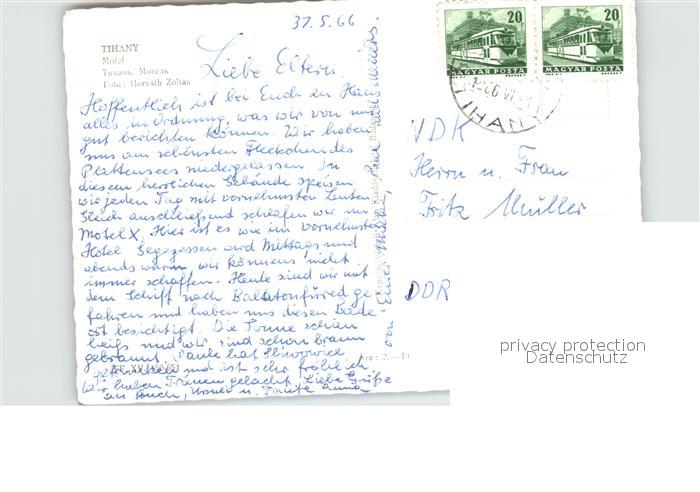 31.5.66
TIHANY
Motel
Тихань, Мотель
Foto: Horváth Zoltán
Liebe Eltern.
Hoffentlich ist bei Euch zu Hause
alles in Ordnung, was wir von uns
gut berichten können. Wir haben
uns am schönsten Fleckchen des
Plattensees niedergelassen. In
diesem herrlichen Gebäude speisen
wir jeden Tag mit vornehmsten Leuten.
Gleich anschließend schlafen wir im
Motel X. Hier ist es wie im vornehmsten
Hotel. Gegessen wird Mittags und
abends warm, wir können's nicht
immer schaffen. Heute sind wir mit
dem Schiff nach Balatonfüred ge-
fahren und haben uns diesen Bade-
ort besichtigt. Die Sonne schien
heiß und wir sind schon braun
gebrannt. Tante hat
und ist sehr fröhlich.
Wir haben Tränen gelacht. Liebe Grüße
an Euch, u. Tante Anna
von Eurer
Ára: 2.— Ft
20
20
MAGYAR POSTA
MAGYAR POSTA
TIHANY
VDK
Herrn u. Frau
Fritz Müller
DDR
privacy protection
Datenschutz